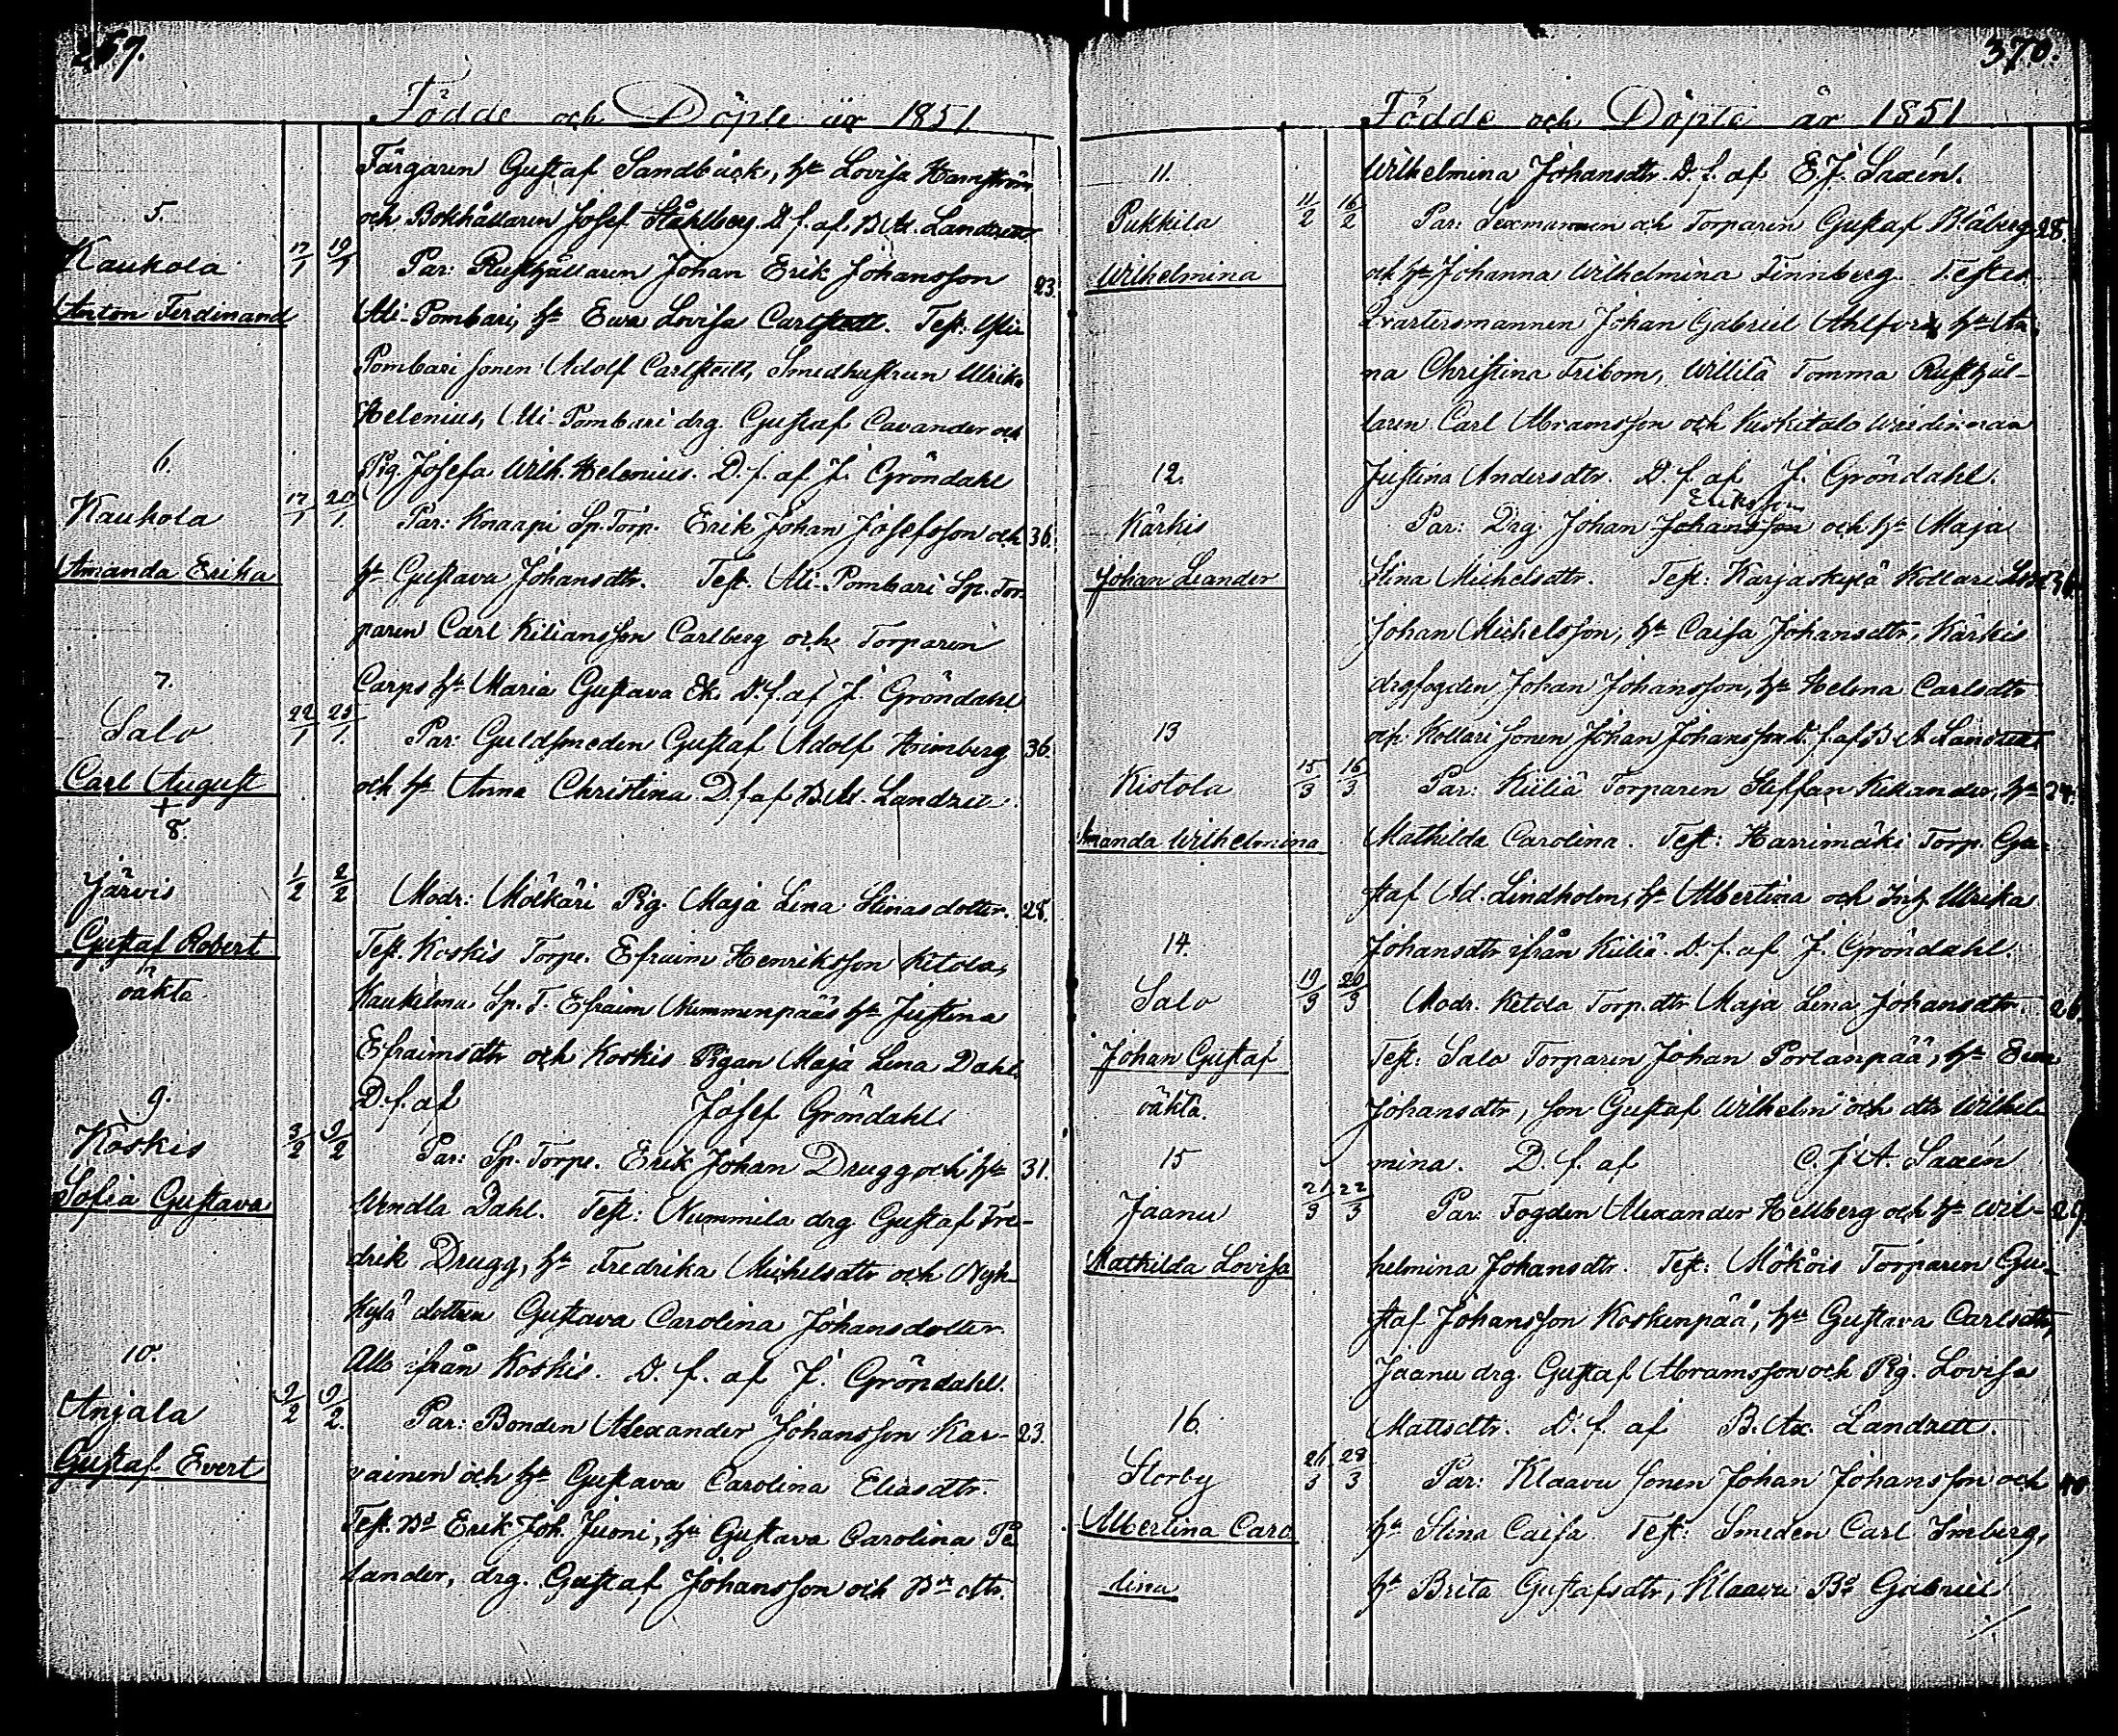 Födde och Döpte år 1851.
Färgaren Gustaf Sandbäck, h:u Lovisa Hamström
och Bokhållaren Josef Ståhlberg. D. f. af B. A. Landzett
5.
Kaukola 17/1 19/1 Par: Rusthållaren Johan Erik Johansson 23.
Anton Ferdinand Ali-Pombari, h:u Ewa Lovisa Carlstedt. Test:
Pombari sonen Adolf Carlstedt, Smedhustrun Ulrika
Helenius, Ali-Pombari drg. Gustaf Cavander och
6.
Pig. Josefa Wilh. Helenius. D. f. af J. Gröndahl
Kaukola 17/1 20/1. Par: Knaapi Sp. Torp. Erik Johan Josefsson och 36.
Amanda Erika h:u Gustava Johansdtr. Test. Ali-Pombari Sp. Tor-
paren Carl Kiliansson Carlberg och Torparen
7.
Carps h:u Maria Gustava Ek. D. f. af J. Gröndahl
Salo 22/1 25/1. Par: Guldsmeden Gustaf Adolf Heimberg 36.
Carl August och h:u Anna Christina. D. f. af B. A. Landzett.
+
8.
Järvis 1/2 2/2 Modr: Mölkäri Pig. Maja Lena Stinasdotter. 28.
Gustaf Robert Test. Koskis Torp. Efraim Henriksson Ketola,
oäkta Kaukelma Sp. T. Efraim Nummenpääs h:u Justina
Efraimsdtr och Koskis Pigan Maja Lena Dahl.
D. f. af Josef Gröndahl.
9.
Koskis 3/2 9/2 Par: Sp. Torp. Erik Johan Drugg och h:u 31.
Sofia Gustava Wendla Dahl. Test: Nummila drg Gustaf Fre-
drik Drugg, h:u Fredrika Michelsdtr och Nyh-
kylä dottren Gustava Carolina Johansdotter.
10.
Alla ifrån Koskis. D. f. af J. Gröndahl.
Anjala 9/2 9/2. Par: Bonden Alexander Johansson Kar- 23.
Gustaf Evert vainen och h:u Gustava Carolina Eliasdtr.
Test. B:d Erik Joh. Juoni, h:u Gustava Carolina Pe
lander, drg. Gustaf Johansson och B:de dtr.
370.
Födde och Döpte år 1851
11.
Wilhelmina Johansdtr. D. f. af E. J. Saxén.
Pukkila 11/2 16/2 Par: Sexmannen och Torparen Gustaf Blåberg 28.
Wilhelmina och h:u Johanna Wilhelmina Finnberg. Testes
Qvartersmannen Johan Gabriel Ahlfors, h:u An
na Christina Fribom, Willilä Tomma Rusthål-
laren Carl Abramsson och Kiskitalo Wärdinnan
12.
Justina Andersdtr. D. f. af J. Gröndahl.
Eriksson
Kärkis Par: Drg. Johan Johansson och h:u Maja
Johan Leander Stina Michelsdtr. Test: Karjaskylä Kollari
Johan Michelsson, h:u Caisa Johansdtr, Kärkis
drgfogden Johan Johansson, h:u Helena Carlsdtr
13
och Kollari sonen Johan Johansson D. f. af B. A. Landzett
Kistola 15/3 16/3 Par: Kiiliä Torparen Steffan Kiliander, h:u 24.
Amanda Wilhelmina Mathilda Carolina. Test: Harrimäki Torp. Gu-
staf Ad. Lindholm, h:u Albertina och Inh. Ulrika
14.
Johansdtr ifrån Kiiliä. D. f. af J. Gröndahl.
Salo 19/3 20/3 Modr. Ketola Torp. dtr Maja Lena Johansdtr.
Johan Gustaf Test: Salo Torparen Johan Porlanpää, h:u Ewa
oäkta. Johansdtr, son Gustaf Wilhelm och dtr Wilhel-
15
mina. D. f. af C. J. A. Saxén
Jaanu 21/3 22/3 Par: Fogden Alexander Hellberg och h:u Wil-
Mathilda Lovisa helmina Johansdtr. Test: Mököis Torparen Gu-
staf Johansson Koskenpää, h:u Gustava Carlsdtr,
Jaanu drg. Gustaf Abramsson och Pig. Lovisa
16.
Mattsdtr. D. f. af B. Ax. Landzett.
Storby 26/3 28/3 Par: Klaavu sonen Johan Johansson och
Albertina Caro h:u Stina Caisa. Test: Smeden Carl Imberg,
lina h:u Brita Gustafsdtr, Klaavu B:d Gabriel